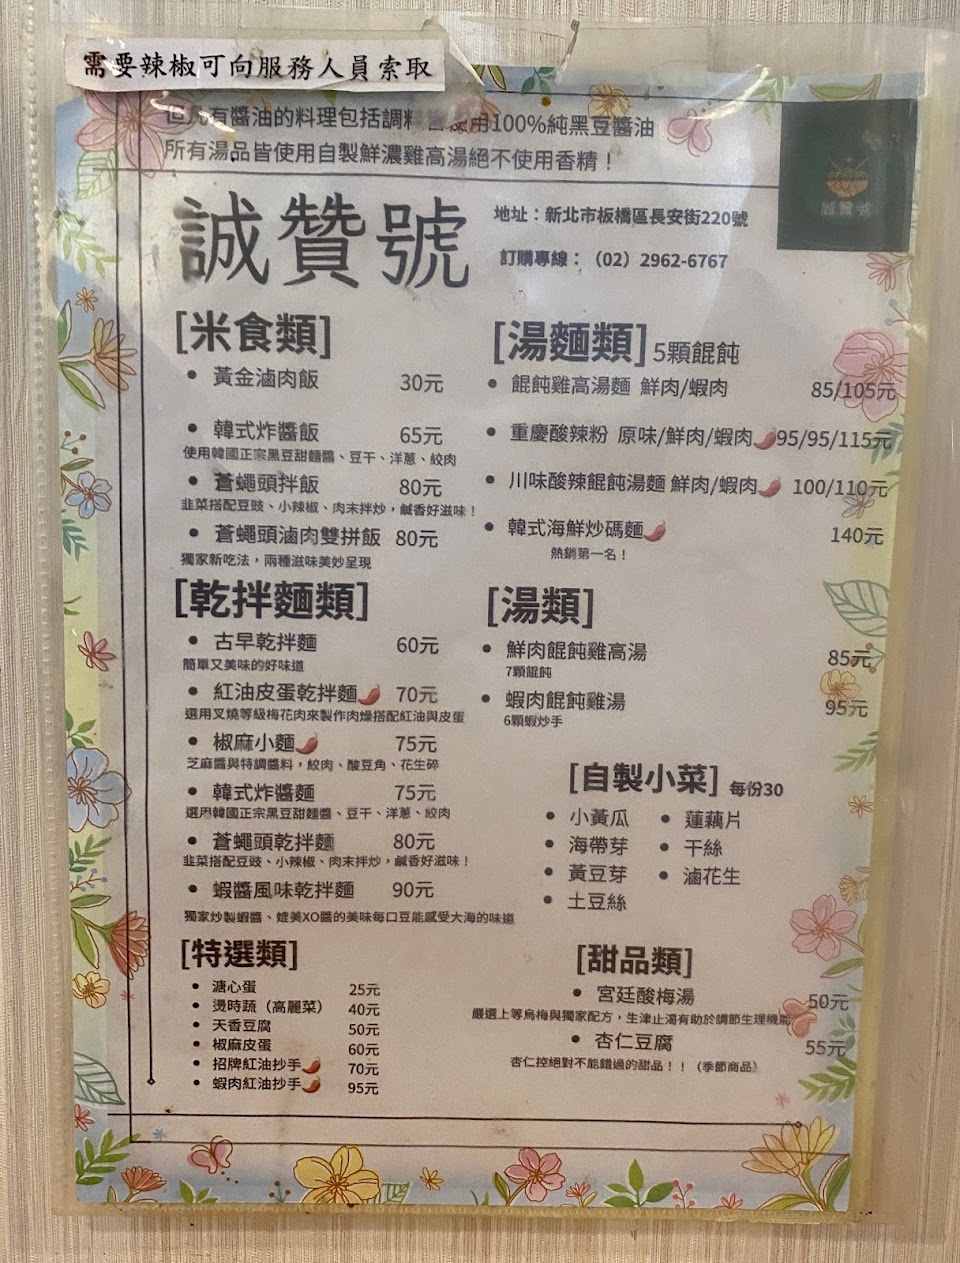 需要辣椒可向服務人員索取
但凡有醬油的料理包括調料皆使用100%純黑豆醬油
所有湯品皆使用自製鮮濃雞高湯絕不使用香精！
誠贊號
地址：新北市板橋區長安街220號
訂購專線：（02）2962-6767
[米食類]
• 黃金滷肉飯 30元
• 韓式炸醬飯 65元
使用韓國正宗黑豆甜麵醬、豆干、洋蔥、絞肉
• 蒼蠅頭拌飯 80元
韭菜搭配豆豉、小辣椒、肉末拌炒，鹹香好滋味！
• 蒼蠅頭滷肉雙拼飯 80元
獨家新吃法，兩種滋味美妙呈現
[乾拌麵類]
• 古早乾拌麵 60元
簡單又美味的好味道
• 紅油皮蛋乾拌麵 70元
選用叉燒等級梅花肉來製作肉燥搭配紅油與皮蛋
• 椒麻小麵 75元
芝麻醬與特調醬料，絞肉、酸豆角、花生碎
• 韓式炸醬麵 75元
選用韓國正宗黑豆甜麵醬、豆干、洋蔥、絞肉
• 蒼蠅頭乾拌麵 80元
韭菜搭配豆豉、小辣椒、肉末拌炒，鹹香好滋味！
• 蝦醬風味乾拌麵 90元
獨家炒製蝦醬、媲美XO醬的美味每口豆能感受大海的味道
[特選類]
• 溏心蛋 25元
• 燙時蔬（高麗菜） 40元
• 天香豆腐 50元
• 椒麻皮蛋 60元
• 招牌紅油抄手 70元
• 蝦肉紅油抄手 95元
[湯麵類] 5顆餛飩
• 餛飩雞高湯麵 鮮肉/蝦肉 85/105元
• 重慶酸辣粉 原味/鮮肉/蝦肉 95/95/115元
• 川味酸辣餛飩湯麵 鮮肉/蝦肉 100/110元
• 韓式海鮮炒碼麵 140元
熱銷第一名！
[湯類]
• 鮮肉餛飩雞高湯 85元
7顆餛飩
• 蝦肉餛飩雞湯 95元
6顆蝦炒手
[自製小菜] 每份30
• 小黃瓜 • 蓮藕片
• 海帶芽 • 干絲
• 黃豆芽 • 滷花生
• 土豆絲
[甜品類]
• 宮廷酸梅湯 50元
嚴選上等烏梅與獨家配方，生津止渴有助於調節生理機能
• 杏仁豆腐 55元
杏仁控絕對不能錯過的甜品！！（季節商品）